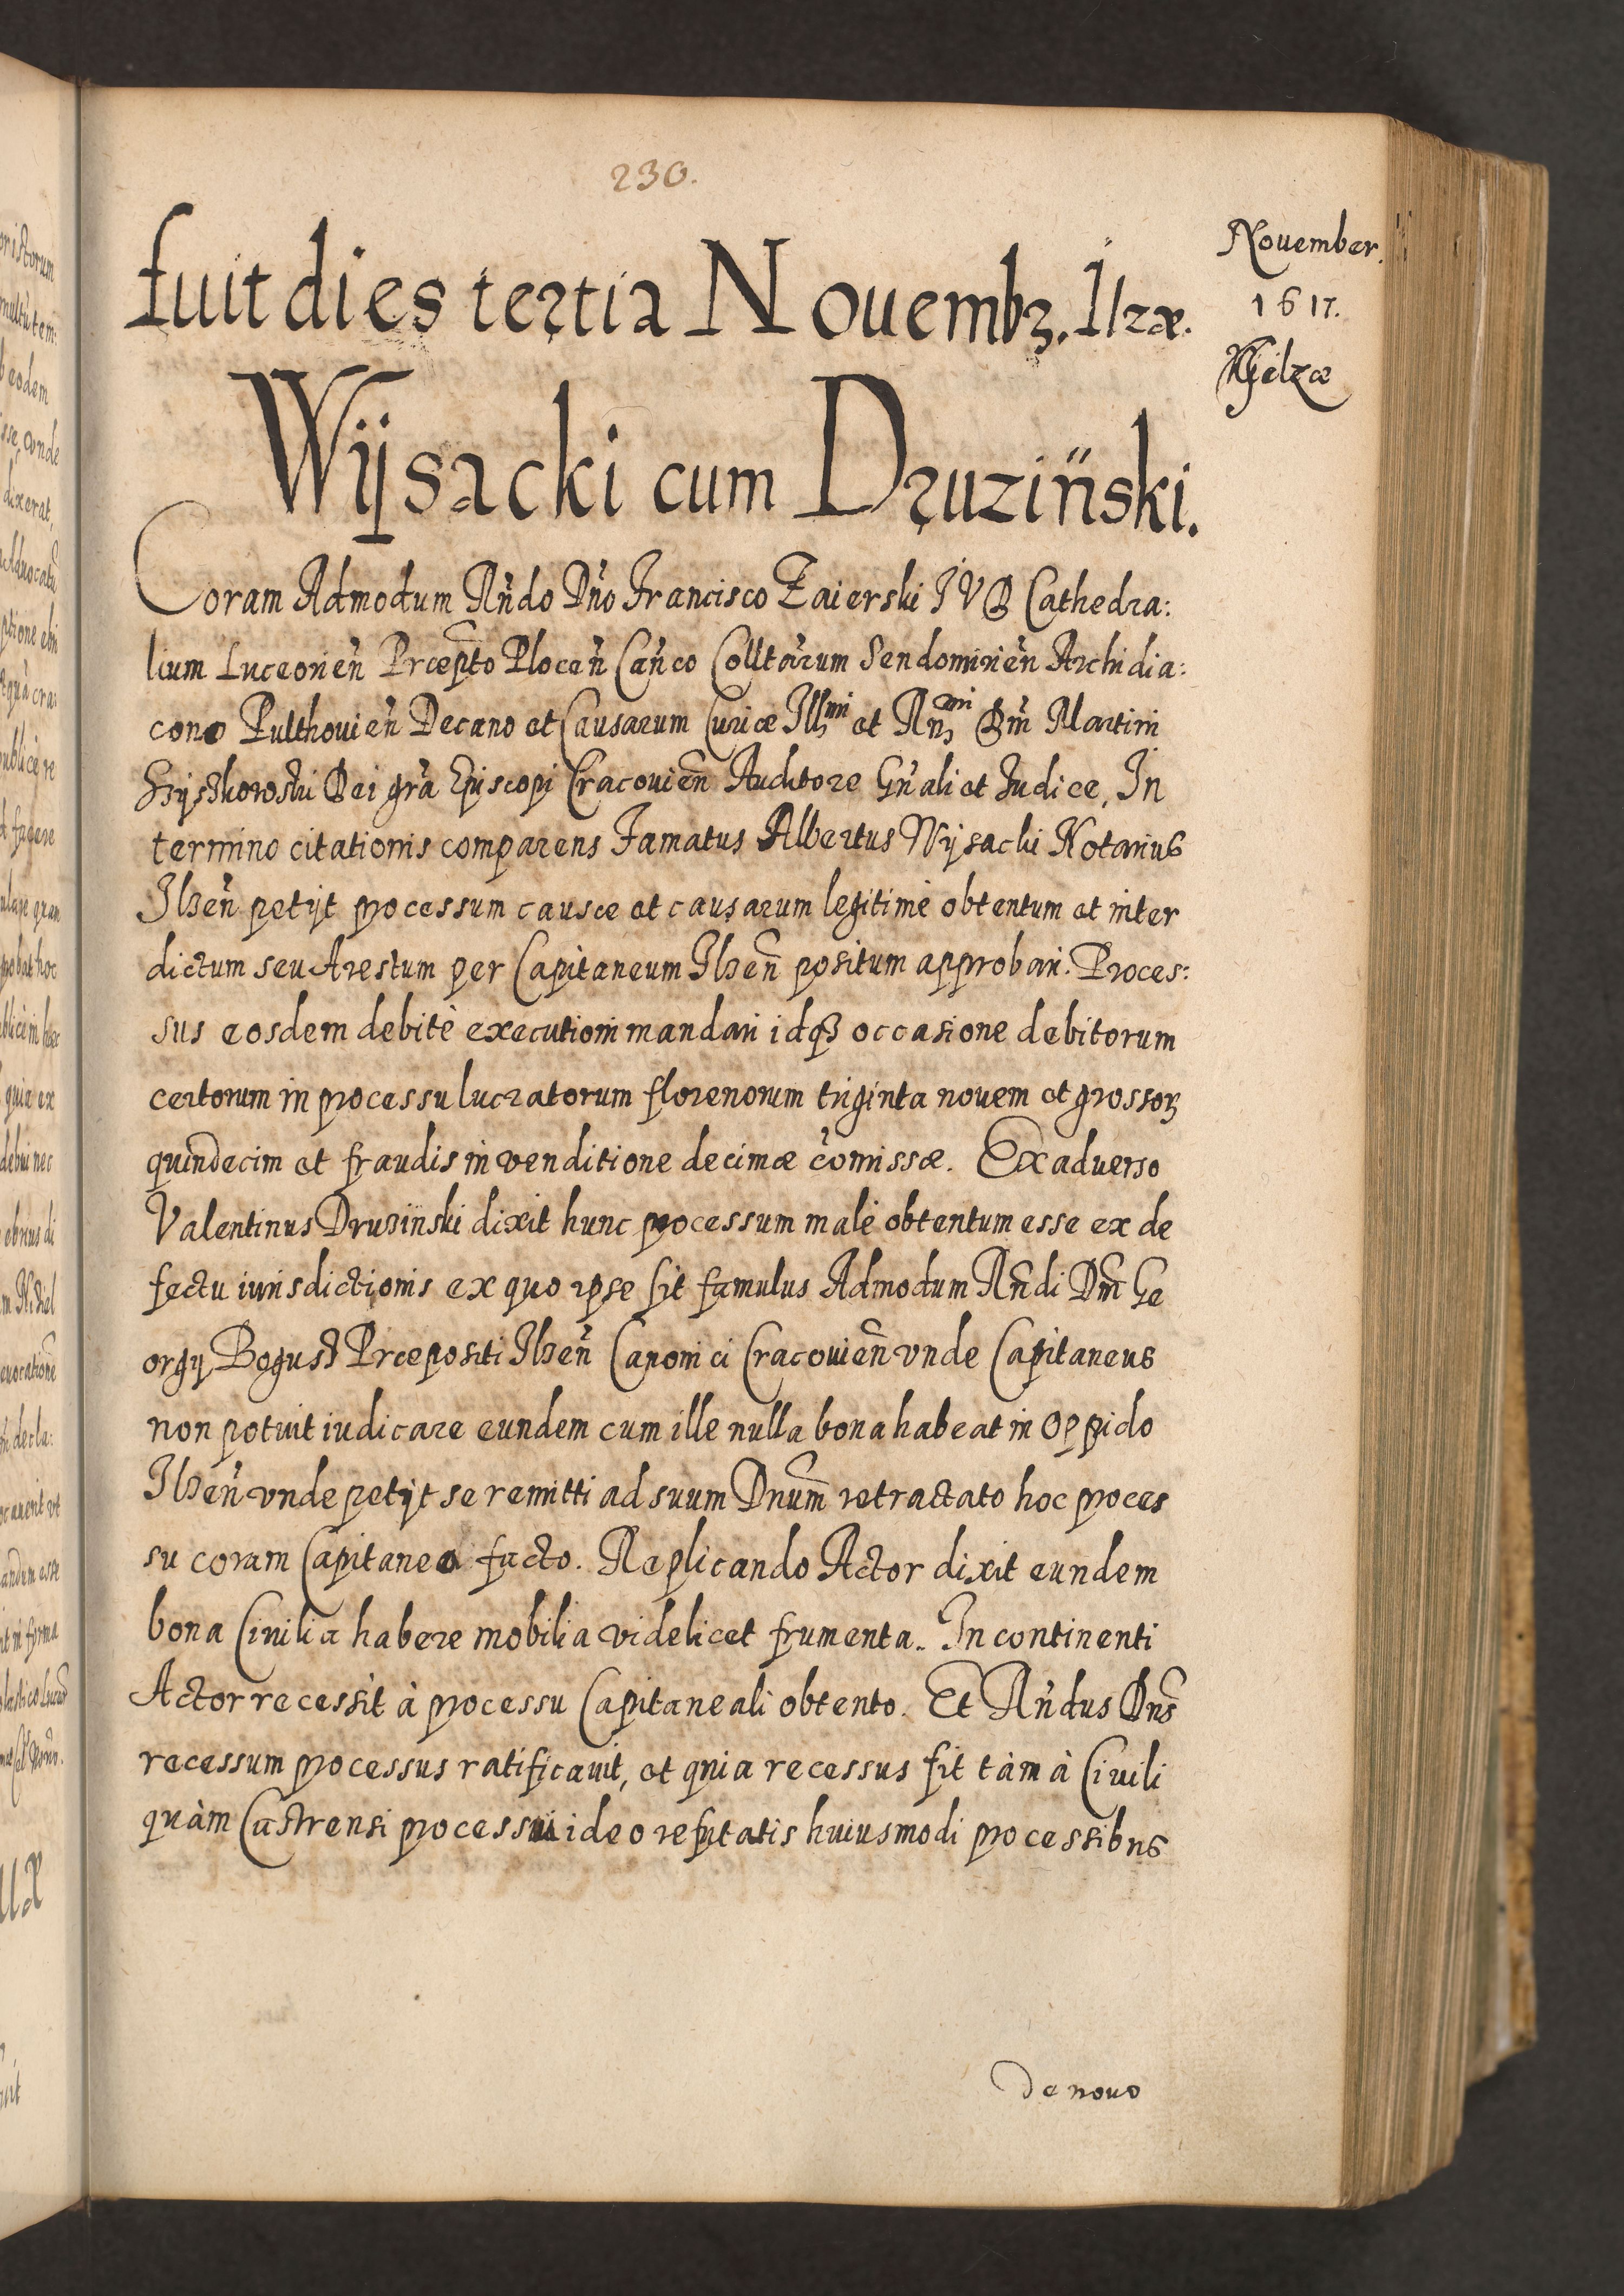 230.
fuit dies tertia Nouembꝫ. Ilzæ.
November.
1617.
Wijsacki cum Druziński.
Coram Admodum Rńdo Dńo Francisco Zaierski I V D Cathedra:
lium Luceorień Præpto̅ Plocen̄ Cańco Colltārum Sendomirien̄ Archidia:
cono Pulthouień Decano et Causarum Curiæ Illmi et Rńmi Dn̄i Martini
Szyszkowski Dei gr̄a Episcopi Cracouien̄ Auditore Gn̄ali et Iudice, In
termino citationis comparens Famatus Albertus Wijsacki Notarius
Ilzeń petijt processum causæ et causarum legitimè obtentum et inter
dictum seu Arestum per Capitaneum Ilzen̄ positum approbari. Proces:
sus eosdem debitè executioni mandari idqꝫ occasione debitorum
certorum in processu lucratorum florenorum triginta nouem et grossorꝫ
quindecim et fraudis in venditione decimæ com̄issæ. Ex aduerso
Valentinus Druziński dixit hunc processum malè obtentum esse ex de
fectu iurisdictionis ex quo ipse sit famulus Admodum Rn̄di Dn̄i Ge
orgij Bogusz Præpositi Ilzeń Canonici Cracouien̄ vnde Capitaneus
non potuit iudicare eundem cum ille nulla bona habeat in Oppido
Ilzeń vnde petijt se remitti ad suum Dnum̄ retractato hoc proces
su coram Capitaneo facto. Replicando Actor dixit eundem
bona Ciuilia habere mobilia videlicet frumenta. In continenti
Actor recessit à processu Capitaneali obtento. Et Rńdus Dn̄s
recessum processus ratificauit, et quia recessus fit tàm à Ciuili
quàm Castrensi processu ideo refutatis huiusmodi processibus
de nouo